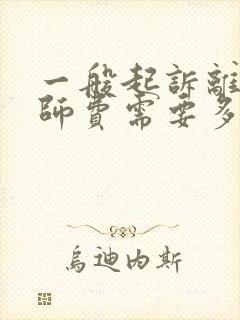 一般起訴離
師費需要多
烏迪內斯